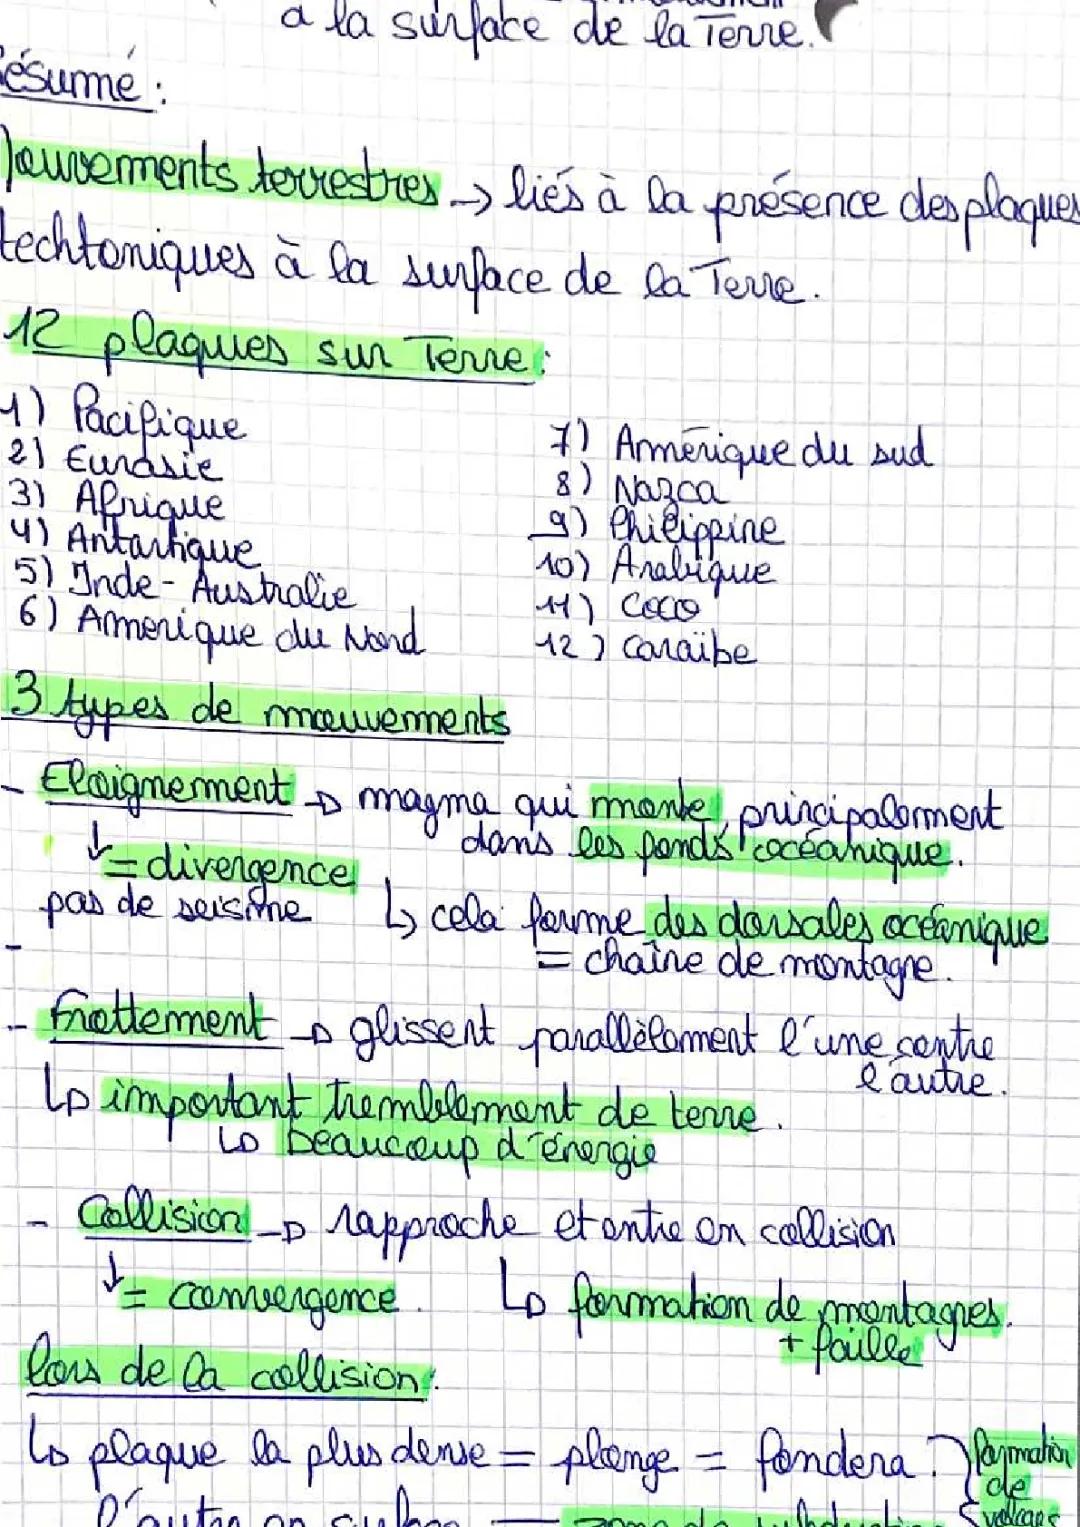 à la surface de la Terre.
ésumé :
ouvements terrestres → liés à la présence des plaques
techtoniques à la surface de la Terre.
12 plaques sur Terre :
1) Pacifique
2) Eurasie
3) Afrique
4) Antartique
5) Inde - Australie
6) Amerique du Nord
7) Amérique du sud
8) Nazca
9) Philippine
10) Arabique
11) Coco
12) Caraïbe
3 types de mouvements
- Eloignement → magma qui monte, principalement
dans les fonds océanique.
↓ = divergence
pas de seisme ↳ cela forme des dorsales océanique
= chaîne de montagne.
-
- Frottement → glissent parallèlement l'une contre
l'autre.
↳ important tremblement de terre.
↳ beaucoup d'énergie
- Collision → rapproche et entre en collision
↓ = convergence. ↳ formation de montagnes.
+ faille
lors de la collision :
↳ plaque la plus dense = plonge = fondera. } formation
de
volcans
l'autre en surface — zone de subduction